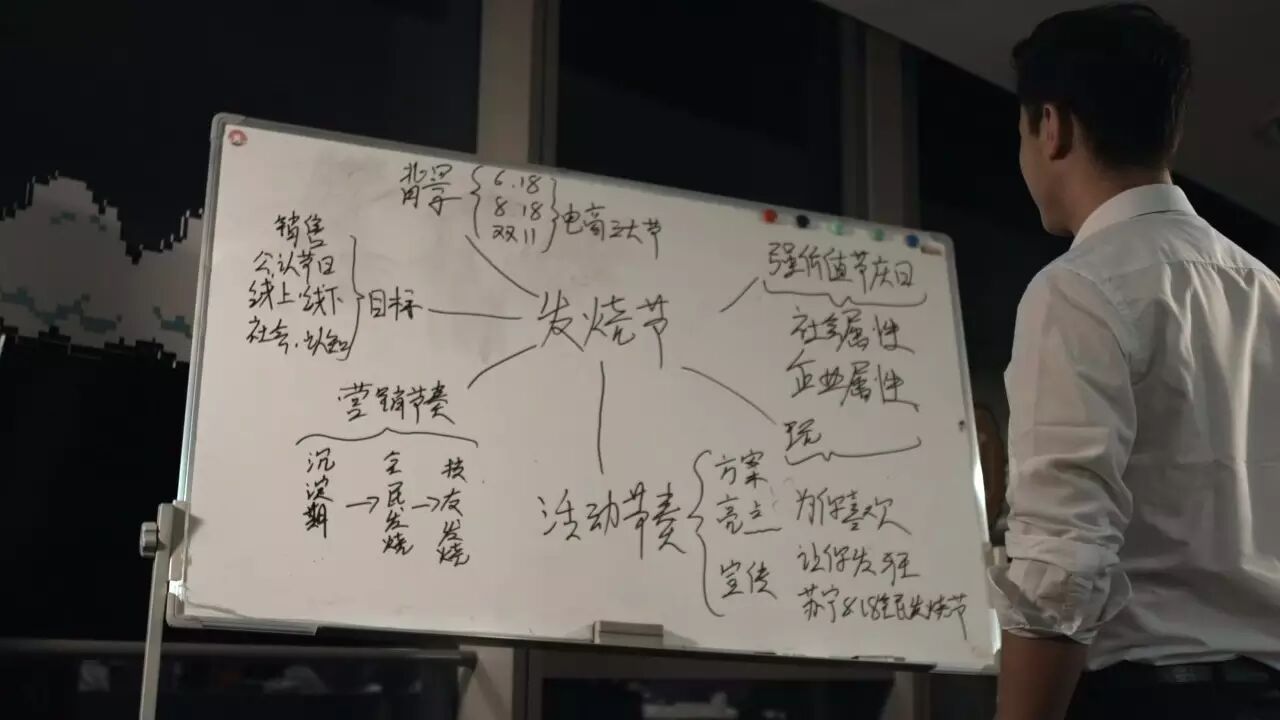 背景
6.18
8.18
双11
电商三大节
销售
公认节日
线上·线下
社会·认知
目标
发烧节
强价值节庆日
社会属性
企业属性
玩
营销节奏
沉淀期→全民发烧→技友发烧
活动节奏
方案
亮点
宣传
为你喜欢
让你发狂
苏宁818全民发烧节